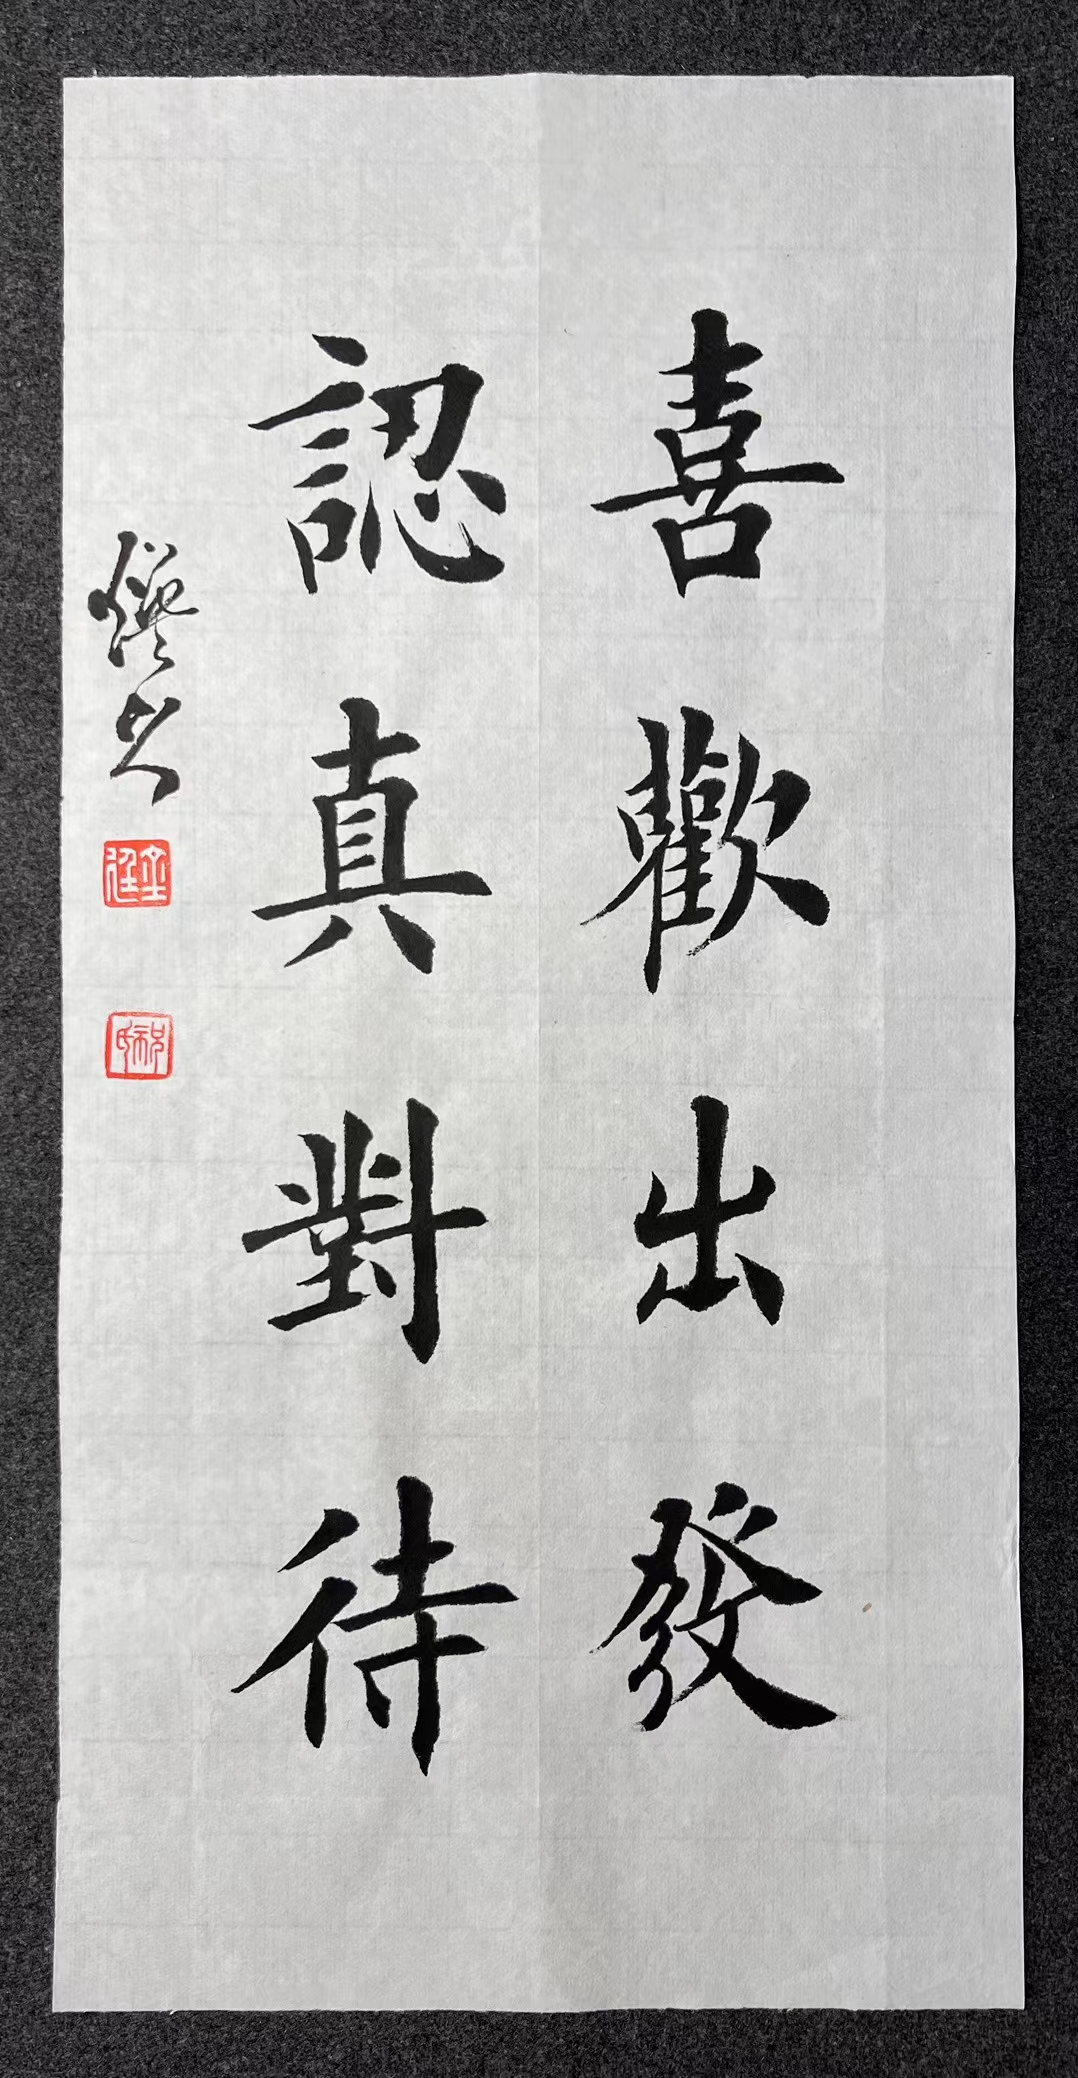 喜歡出發
認真對待